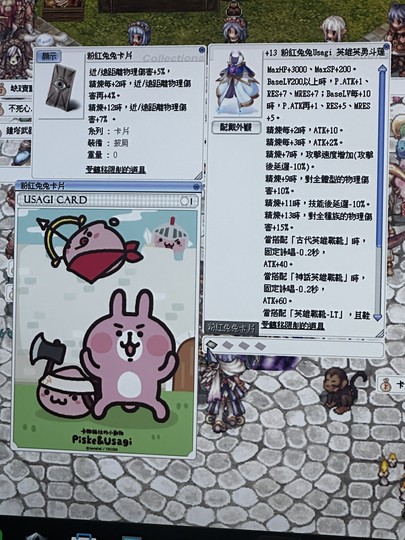 顯示
粉紅兔兔卡片
Collections
近/遠距離物理傷害+5%，
精煉每+2時，近/遠距離物理傷
害再+4%。
精煉+12時，近/遠距離物理傷
害+7%。
系列：卡片
裝備：披肩
重量：0
受轉移限制的道具
粉紅兔兔卡片
USAGI CARD
1
卡娜赫拉的小動物
Piske&Usagi
+13 粉紅兔兔Usagi 英雄英勇斗篷
配戴外觀
MaxHP+3000、MaxSP+200。
BaseLV200以上時，P.ATK+1、
RES+7、MRES+7；BaseLV每+10
時，P.ATK再+1、RES+5、MRES
+5。
精煉每+2時，ATK+10。
精煉每+3時，ATK+2%。
精煉+7時，攻擊速度增加(攻擊
後延遲-10%)。
精煉+9時，對全體型的物理傷
害+10%。
精煉+11時，技能後延遲-10%。
精煉+13時，對全種族的物理傷
害+15%。
當搭配「古代英雄戰靴」時，
固定詠唱-0.2秒，
ATK+40。
當搭配「神話英雄戰靴」時，
固定詠唱-0.2秒，
ATK+60。
當搭配「英雄戰靴-LT」，且鞋
受轉移限制的道具
粉紅兔兔卡片
不死心
卡